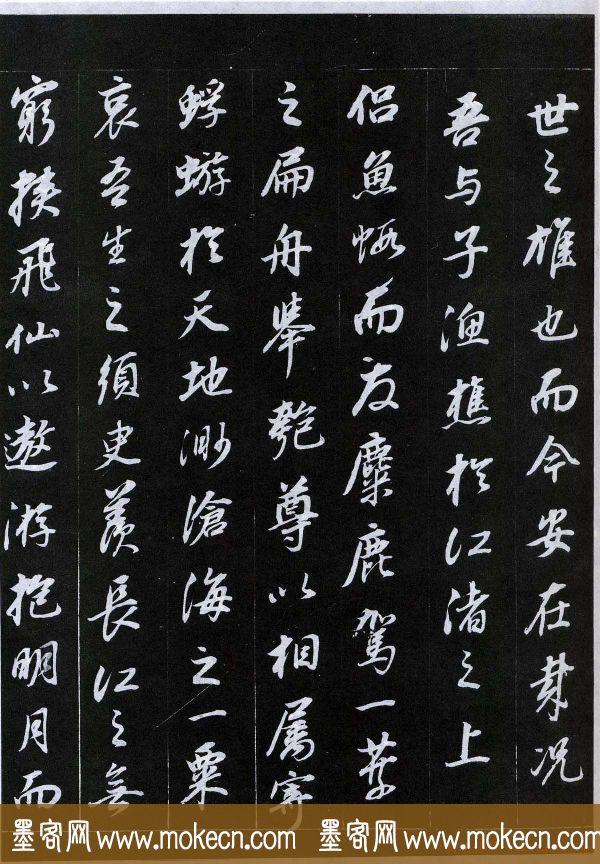 世之雄也而今安在哉况
吾与子渔樵於江渚之上
侣鱼虾而友麋鹿驾一叶
之扁舟举匏尊以相属寄
蜉蝣於天地渺滄海之一粟
哀吾生之須臾羨長江之無
窮挟飛仙以遨游抱明月而
墨客网 www.mokecn.com 墨客网 www.mokecn.com